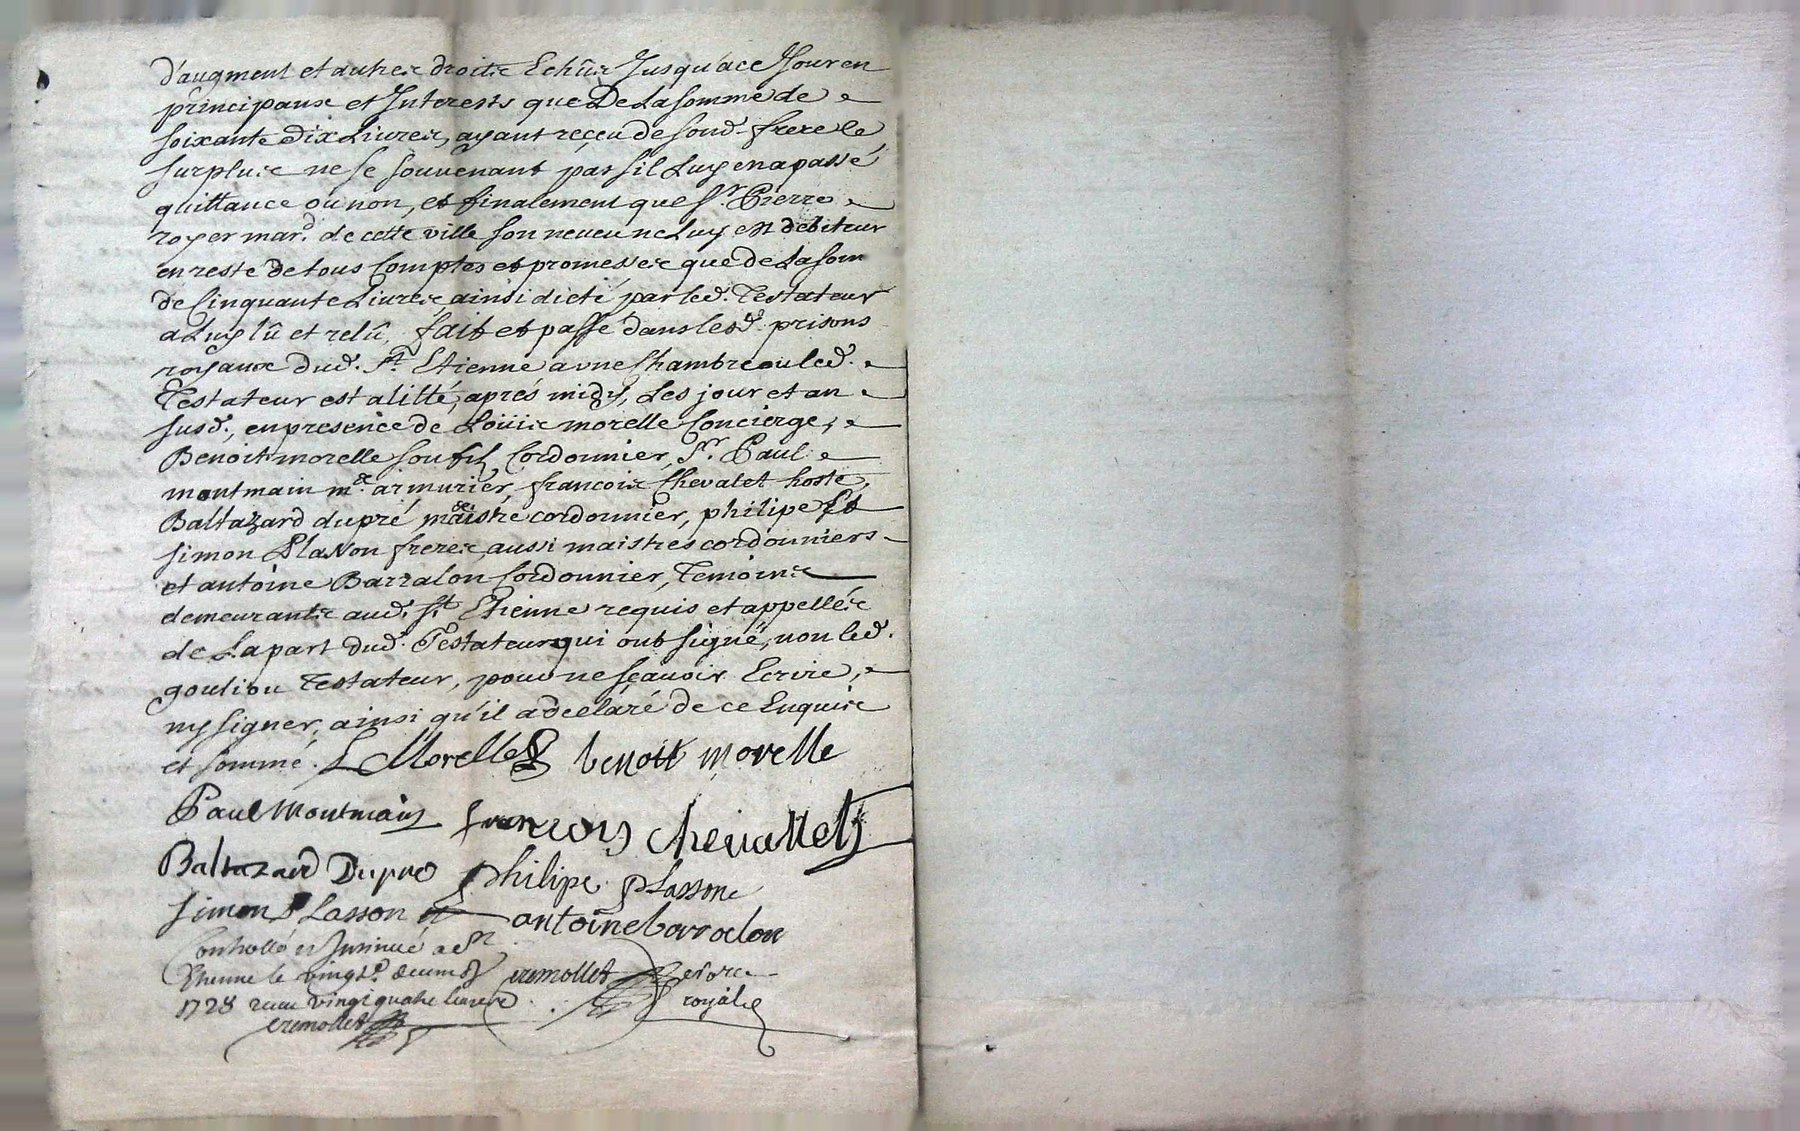 d'augment et autres droits Echûs Jusqu'a ce Jour en
principaux et Interests que De La somme de
soixante Dix Livres, ayant reçeu de soud. frere le
surplus ne se souvenant pas sil Luy en a passé
quittance ou non, et finalement que Sr. Pierre
royer mard. de cette ville son neveu ne Luy est debiteur
en reste de tous Comptes et promesses que de La som
de Cinquante Livres ainsi dicté par led. Testateur
a Luy lû et relû, fait et passé dans lesd. prisons
royaux dud. St. Etienne a une Chambre ou led.
Testateur est alitté, aprés midy, Les jour et an
susd., en presence de Loüis morelle Concierge,
Benoit morelle son fils Cordonnier, Sr. Paul
montmain me. armurier, francois Chevalet hoste,
Baltazard dupré maistre cordonnier, philipe Et
simon Plasson freres aussi maistres cordonniers
et antoine Barralon Cordonnier, Temoins
demeurants aud. St Etienne requis et appellés
de La part dud. Testateur qui ont signé, non led.
goulion Testateur, pour ne sçavoir Ecrire,
ny signer, ainsi qu'il a declaré de ce Enquis
et sommé. L Morelle benoit morelle
Paul Montmain francois chevallet
Baltazard Dupré philipe plasson
Simon Plasson antoine barralon
Controllé et Insinué a St
Etienne le vingt decembre
1728 receu vingt quatre livres
royal